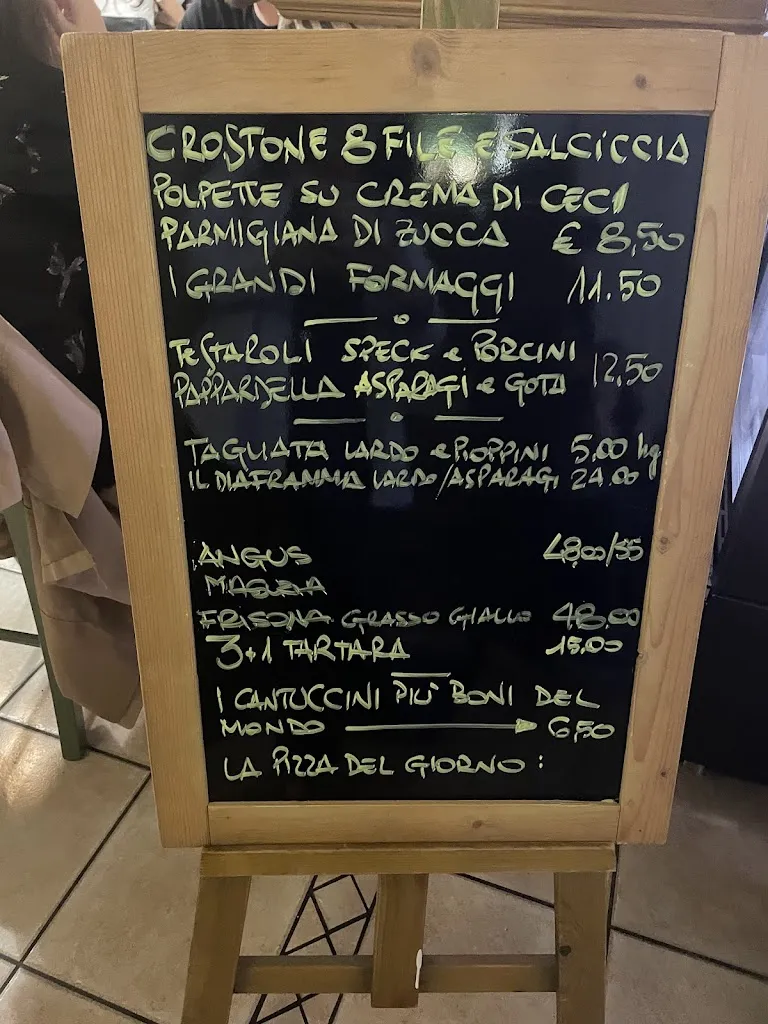 CROSTONE 8 FILE E SALCICCIA
POLPETTE SU CREMA DI CECI
PARMIGIANA DI ZUCCA € 8,50
I GRANDI FORMAGGI 11.50
TESTAROLI SPECK e PORCINI
PAPPARDELLA ASPARAGI e GOTA 12,50
TAGLIATA LARDO e PIOPPINI 5.00 hg
IL DIAFRAMMA LARDO/ASPARAGI 24.00
ANGUS 48,00/55
FRISONA GRASSO GIALLO 48.00
3+1 TARTARA 15.00
I CANTUCCINI PIÙ BONI DEL
MONDO 6,50
LA PIZZA DEL GIORNO: